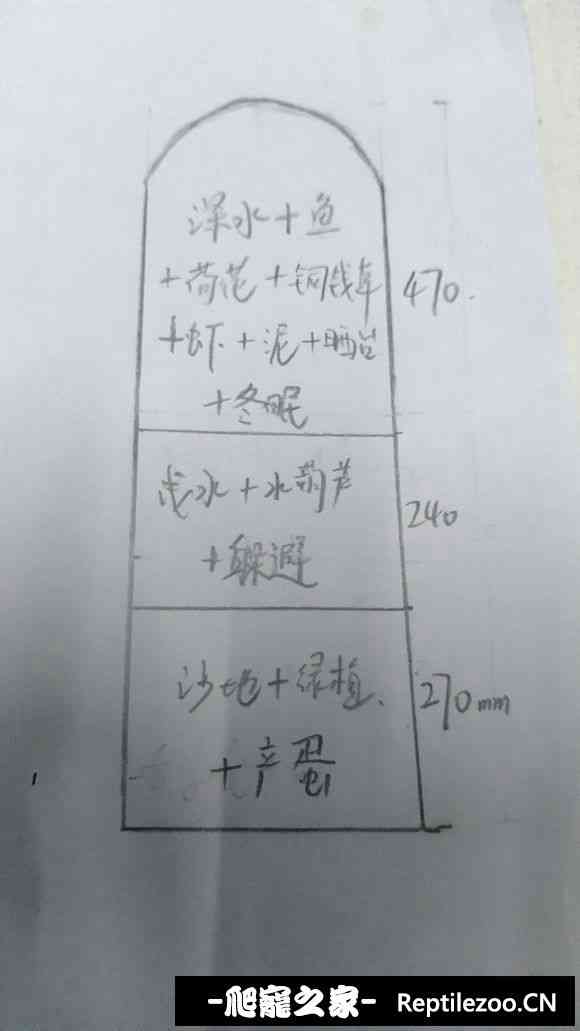 深水+鱼
+荷花+铜钱草
+虾+泥+晒台
+冬眠
470.
浅水+水葫芦
+躲避
240
沙地+绿植、
+产蛋
270mm
-爬寵之家- Reptilezoo.CN